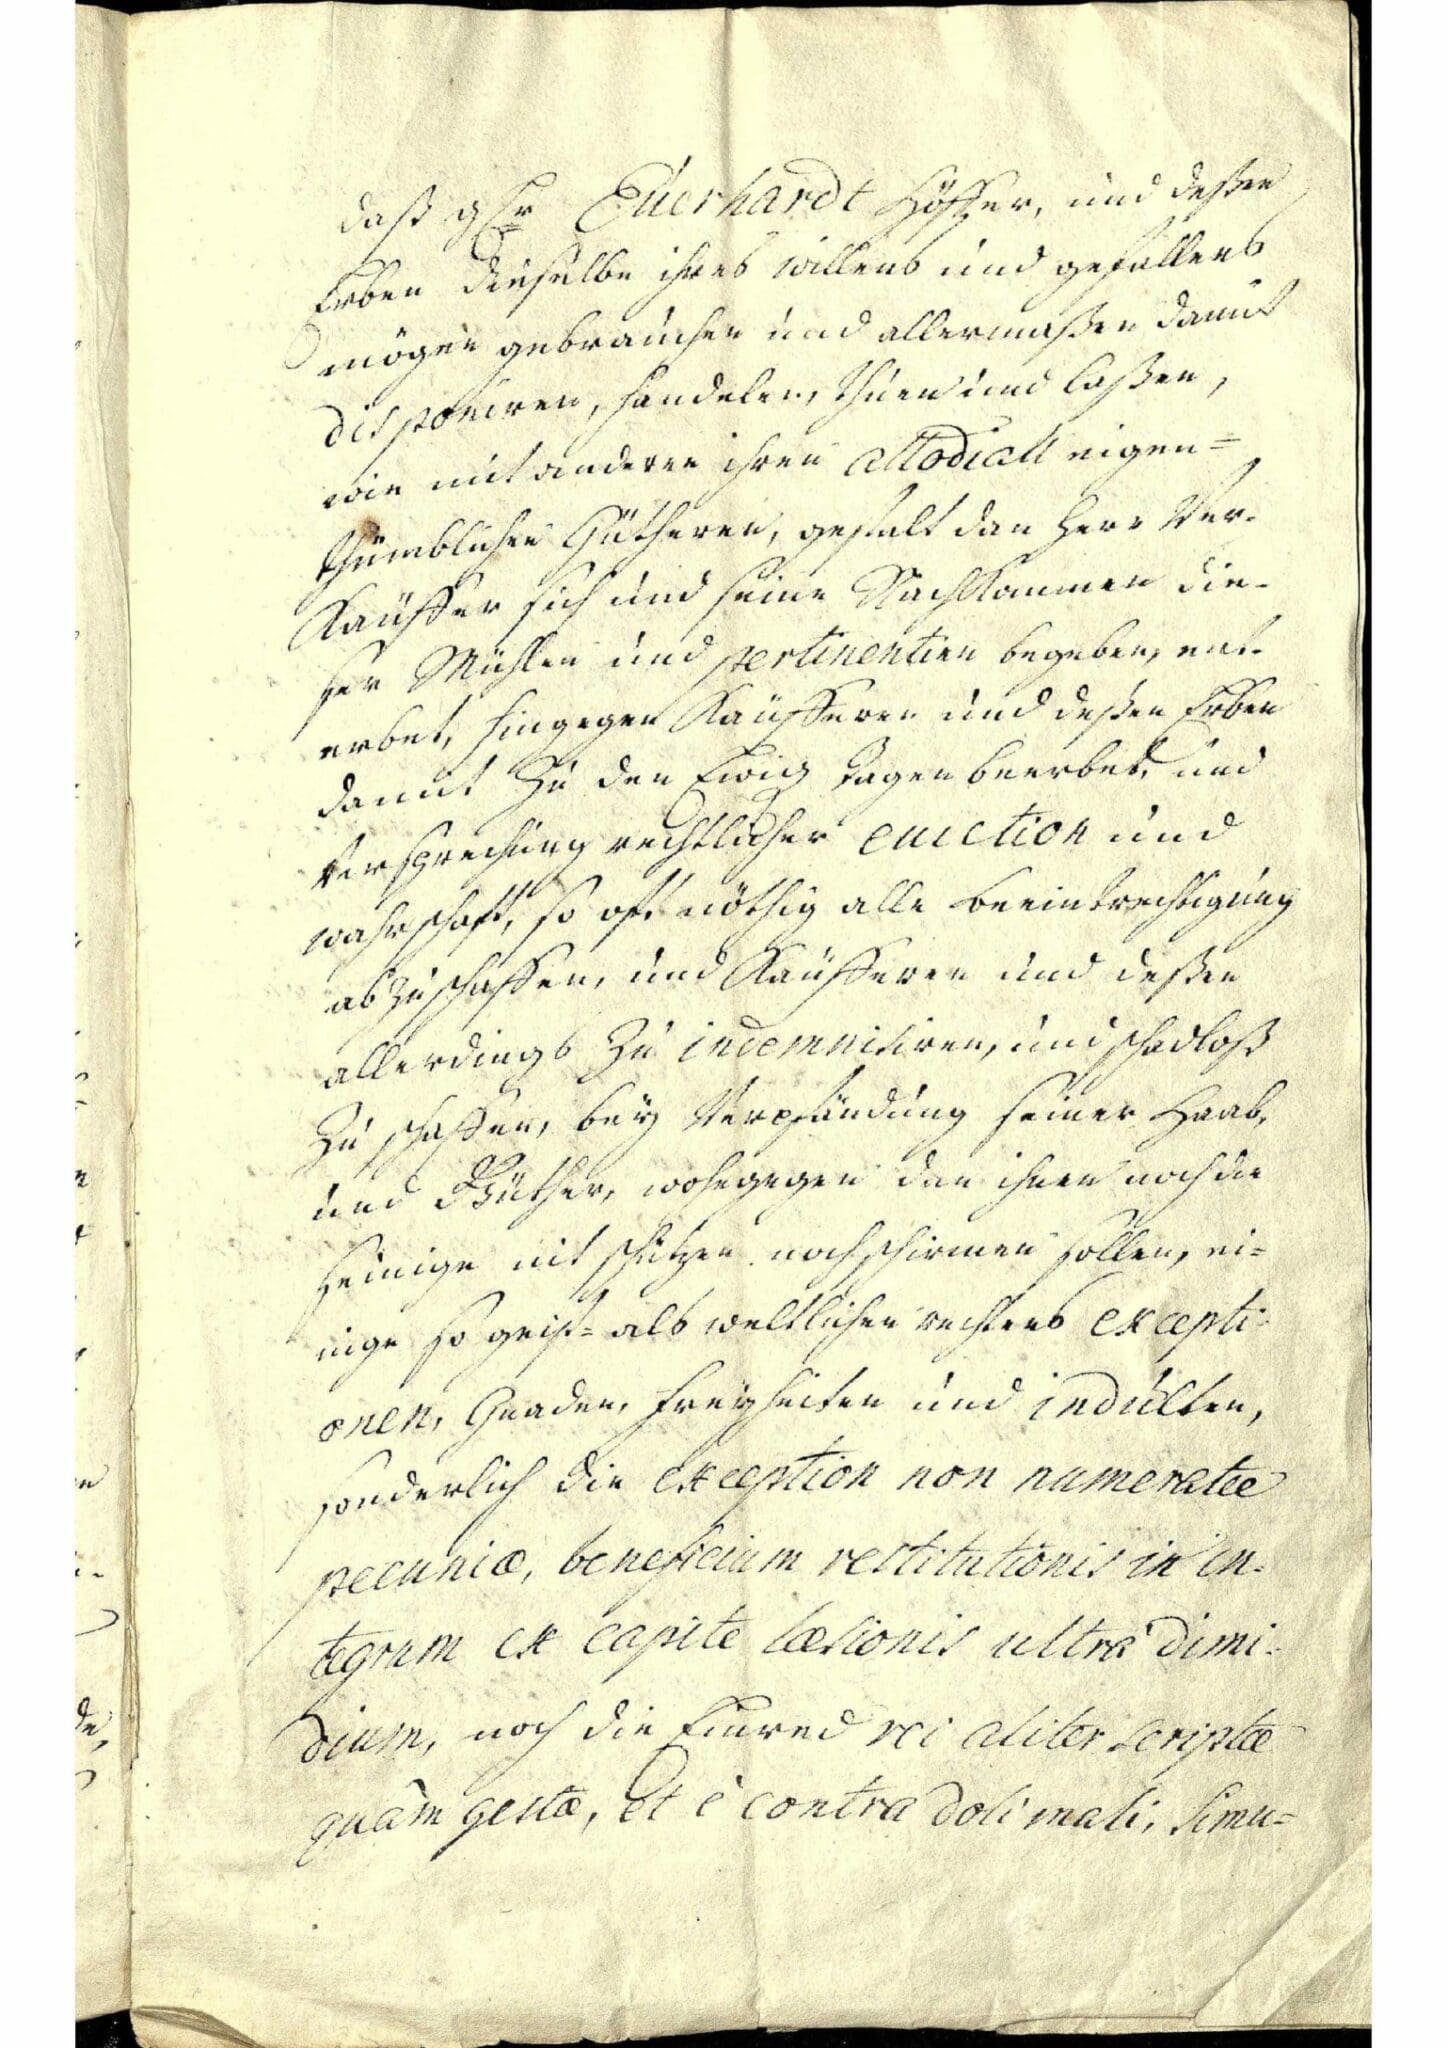 daß gHr Euerhardt Höffer, und deßen
Erben dieselbe ihres willens und gefallens
mögen gebrauchen und allermaßen damit
disponiren, handelen, thuen und laßen,
wie mit anderen ihren allodiall eigen=
thümblichen Gütheren, gestalt dan Herr Ver-
Käuffer sich und seine Nachkommen die-
ser Mühlen und pertinentien begeben, ent-
erbet, hingegen Käufferen und deßen Erben
damit zu den Ewig tagen beerbet, und
Versprechung rechtlicher euiction und
wahrschafft, so offt nöthig alle beeintrechtigung
abzuschaffen, und Käufferen und deßen
allerdings zu indemnisiren, und schadloß
zu schaffen, bey Verpfändung seiner Haab,
und Güther, wohegegen dan ihnen noch die
seinige nit schützen noch schirmen sollen, ei=
nige so geist= als weltlichen rechtens excepti-
onen, Gnaden, freyheiten und indulten,
sonderlich die exception non numeratæ
pecuniæ, beneficium restitutionis in in-
tegrum ex capite læsionis ultra dimi-
dium, noch die Einred rei aliter scriptæ
quàm gestæ, et è contra doli mali, simu=